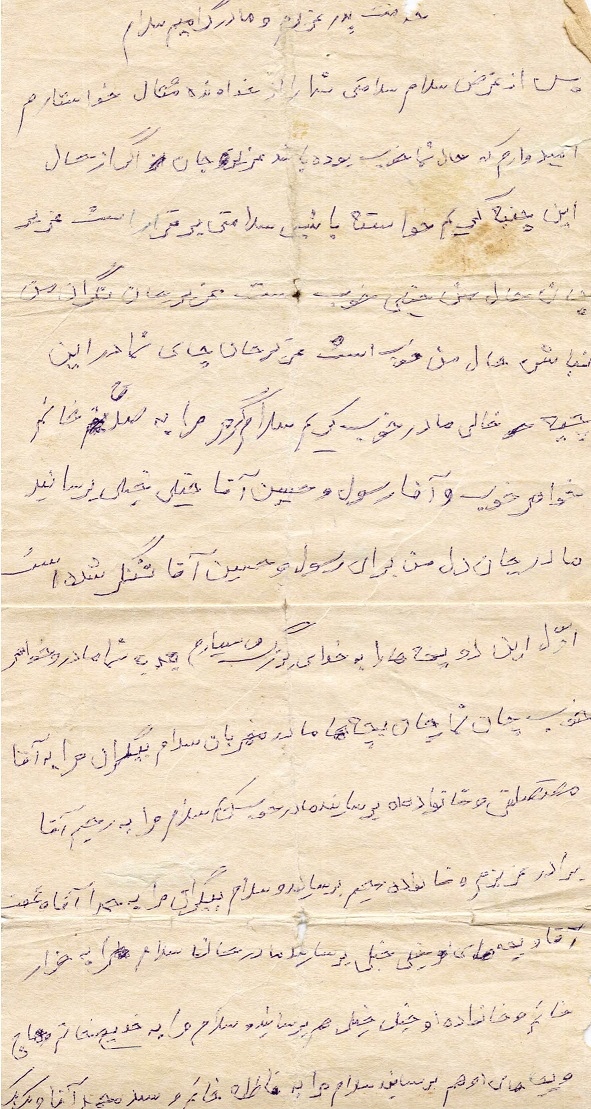 خدمت پدر عزیزم و مادر گرامیم سلام
پس از عرض سلام سلامتی شما را از خداوند متعال خواستارم
امیدوارم که حال شما خوب بوده باشد عزیز جان اگر از حال
این بنده خواسته باشی سلامتی برقرار است عزیز
جان حال من خیلی خوب است عزیز جان نگران من
نباش حال من خوب است عزیز جان جای شما در این
جبهه خالی مادر خوب سلام گرم مرا به خانم
خواهر خوب و آقا رسول و حسین آقا خیلی خیلی برسانید
مادر جان دل من برای رسول و حسین آقا تنگ شده است
اول این دو بچه ها را به خدای بزرگ می سپارم بعد به شما مادر و خواهر
خوب جان شما جان بچه ها مادر مهربان سلام بیکران مرا به آقا
مصطفی و خانواده برسانید مادر خوب سلام مرا به رحیم آقا
برادر عزیزم و خانواده رحیم برسانید و سلام بیکران مرا به
آقا و بچه های خیلی خیلی برسانید مادر سلام مرا به
خانم و خانواده او خیلی خیلی هم برسانید و سلام مرا به خدیجه خانم
و بچه های او هم برسانید سلام مرا به فاطمه خانم و سید محمد آقا و